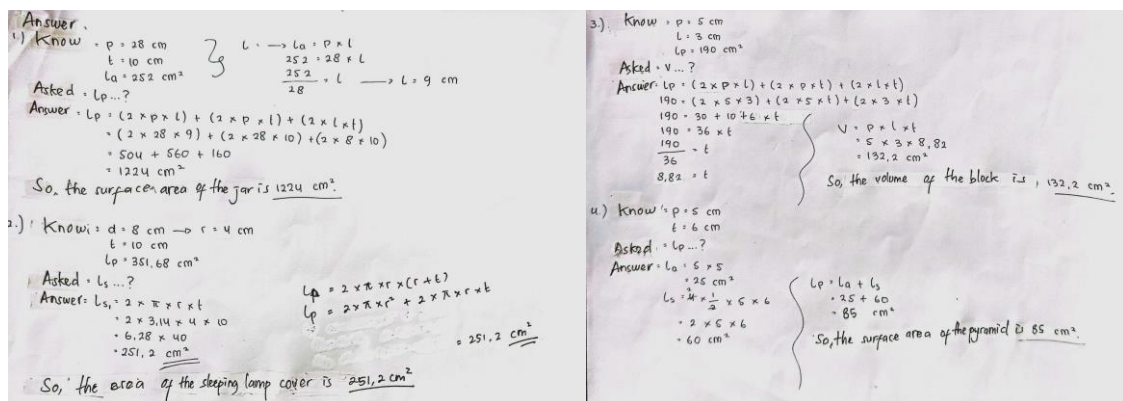 Answer.
1.) Know : p = 28 cm
t = 10 cm
La = 252 cm²
L. → La = p × l
252 = 28 × L
252/28 = L → L = 9 cm
Asked = Lp...?
Answer = Lp = (2 × p × l) + (2 × p × t) + (2 × l × t)
= (2 × 28 × 9) + (2 × 28 × 10) + (2 × 8 × 10)
= 504 + 560 + 160
= 1224 cm²
So, the surface area of the jar is 1224 cm².
2.) Know : d = 8 cm → r = 4 cm
t = 10 cm
Lp = 351,68 cm²
Asked = Ls...?
Answer = Ls, = 2 × π × r × t
= 2 × 3,14 × 4 × 10
= 6,28 × 40
= 251,2 cm²
Lp = 2 × π × r × (r + t)
Lp = 2 × π × r² + 2 × π × r × t
= 251,2 cm²
So, the area of the sleeping lamp cover is 251,2 cm²
3.) Know = p = 5 cm
L = 3 cm
Lp = 190 cm²
Asked = V...?
Answer = Lp = (2 × p × l) + (2 × p × t) + (2 × l × t)
190 = (2 × 5 × 3) + (2 × 5 × t) + (2 × 3 × t)
190 = 30 + 10 + 6 × t
190 = 36 × t
190/36 = t
8,82 = t
V = p × l × t
= 5 × 3 × 8,82
= 132,2 cm²
So, the volume of the block is, 132,2 cm².
4.) Know = p = 5 cm
t = 6 cm
Asked = Lp...?
Answer = La = 5 × 5
= 25 cm²
Ls = 4 × 1/2 × 5 × 6
= 2 × 5 × 6
= 60 cm²
Lp = La + Ls
= 25 + 60
= 85 cm²
So, the surface area of the pyramid is 85 cm².